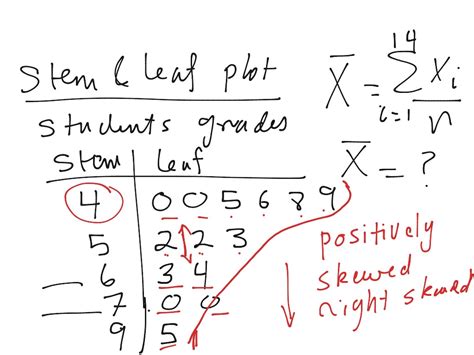 Stem & Leaf plot
students grades
Stem | Leaf
4 | 0 0 5 6 8 9
5 | 2 2 3
6 | 3 4
7 | 0 0
9 | 5
X̄ = 14 Σ i=1 xi / n
X̄ = ?
positively
skewed
right skewed